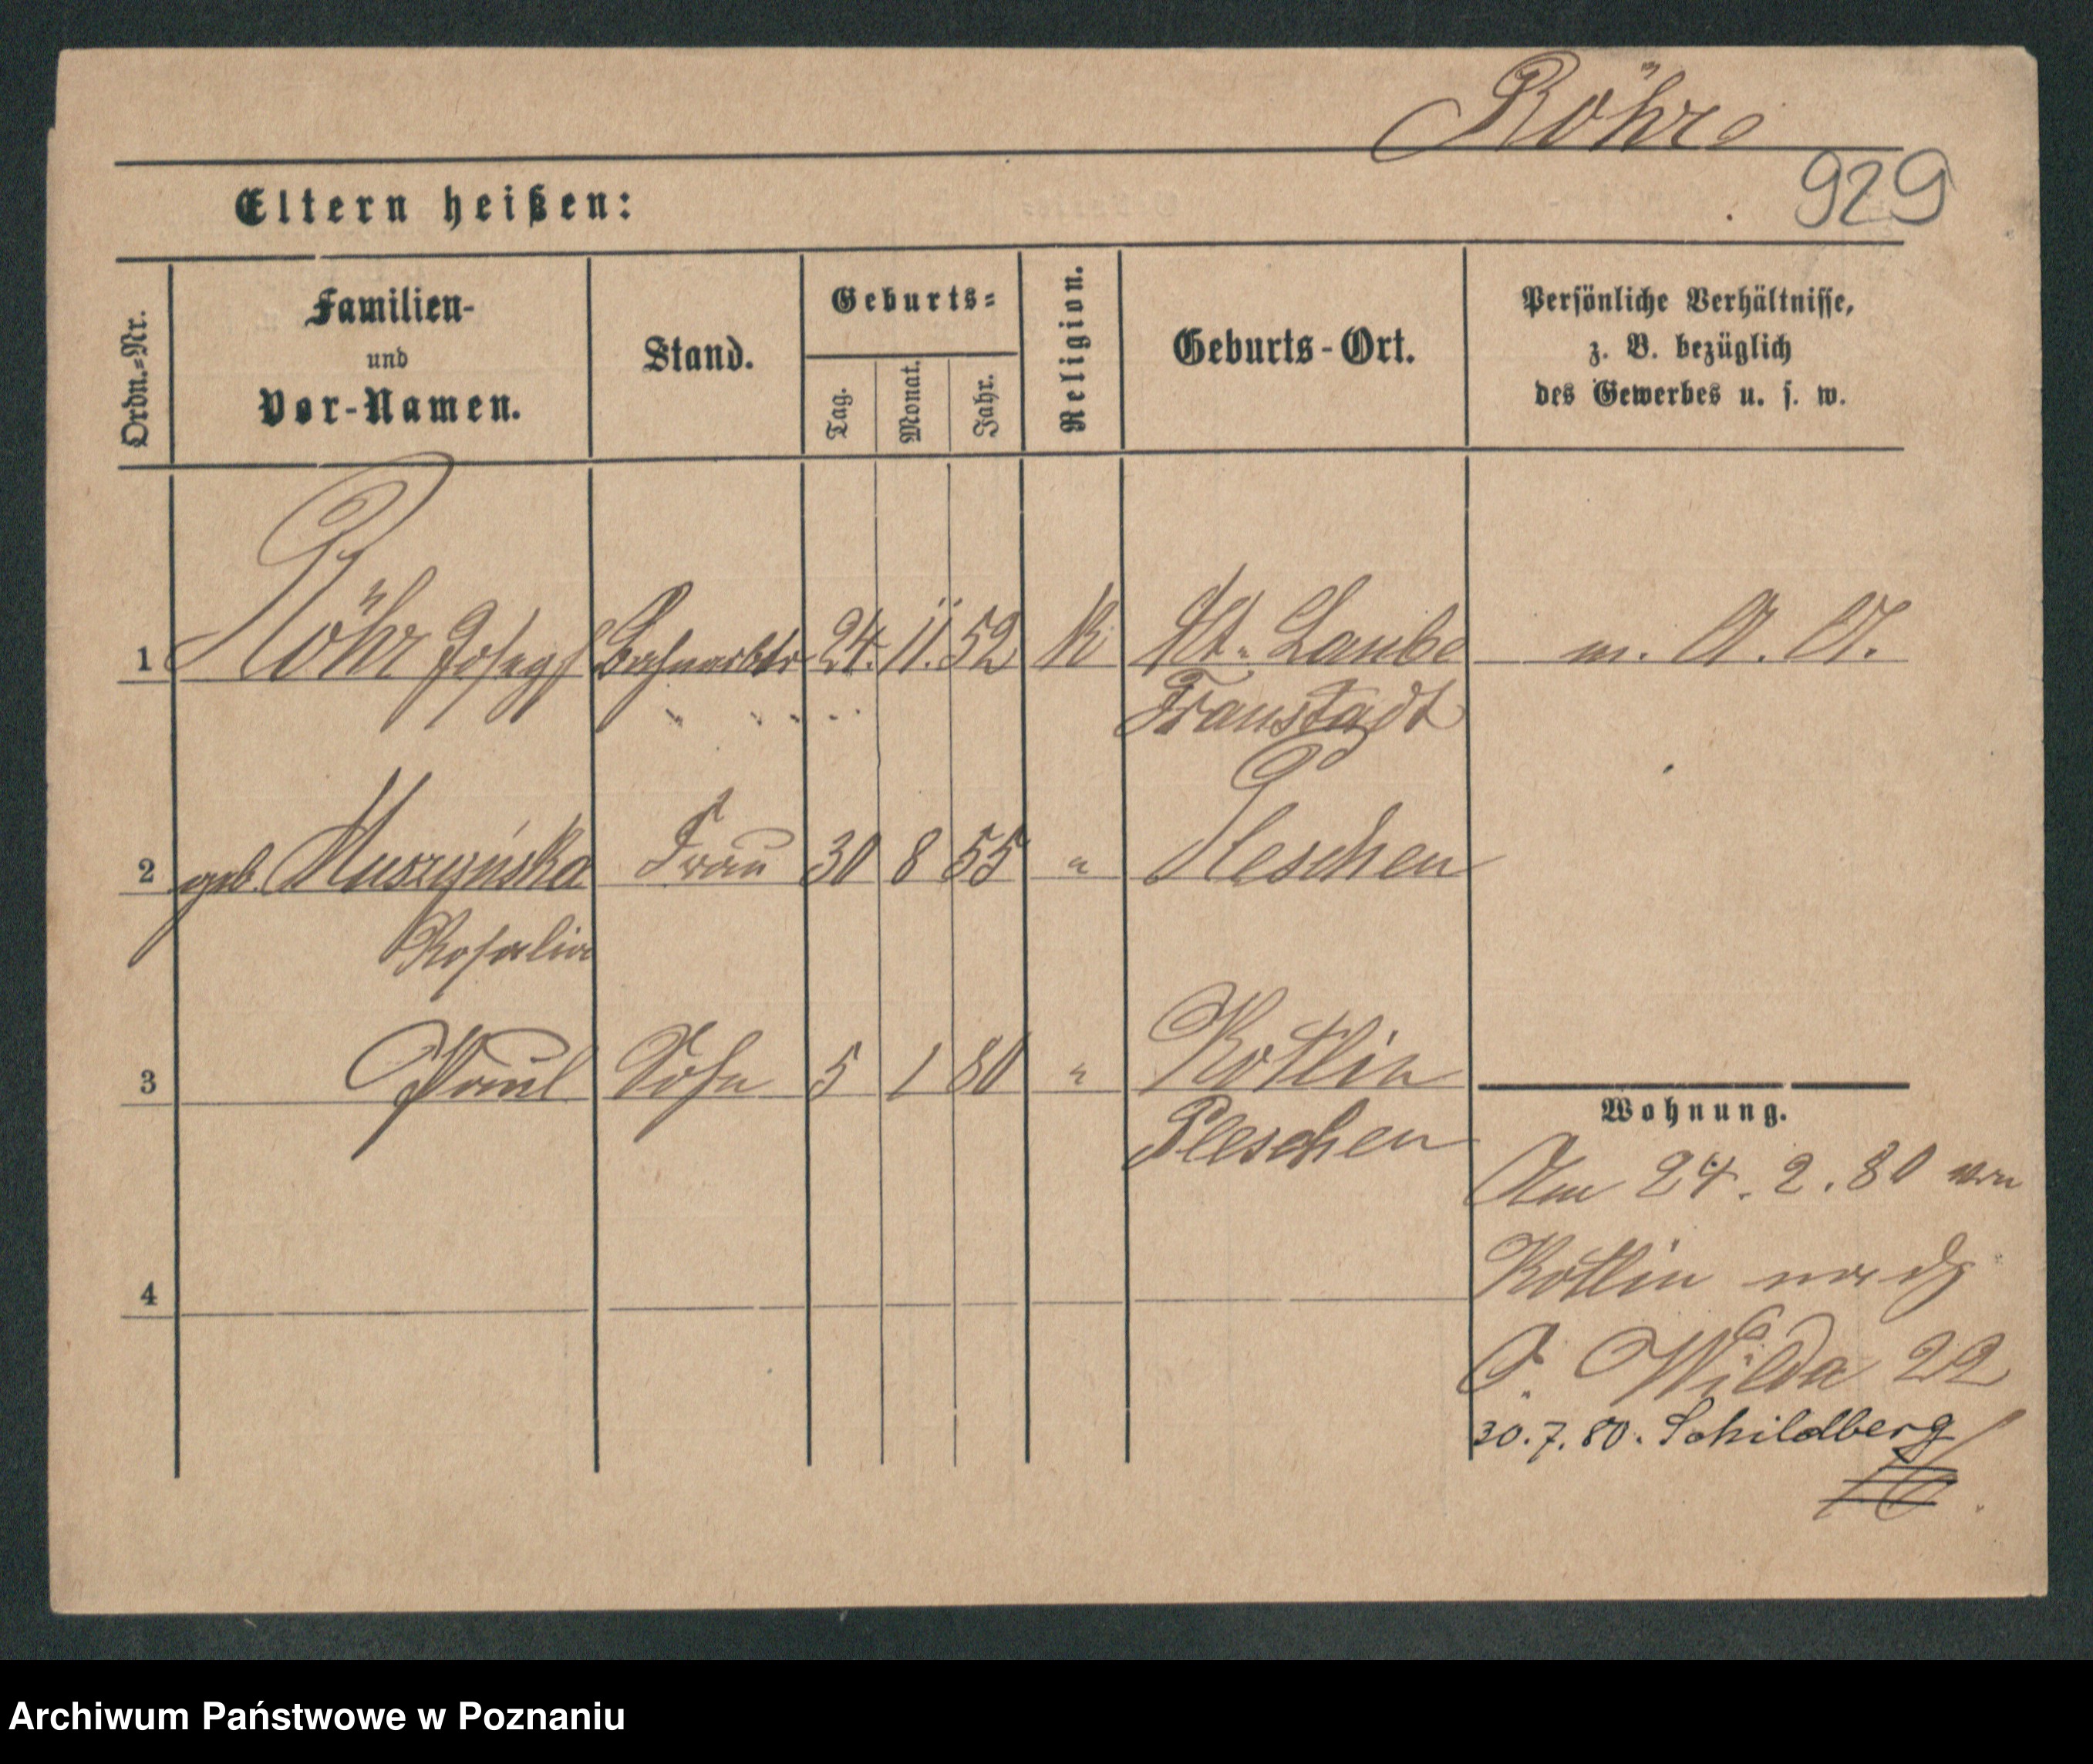 Röhr
929
Eltern heißen:
Ordn.-Nr.
Familien-
und
Vor-Namen.
Stand.
Geburts-
Tag.
Monat.
Jahr.
Religion.
Geburts-Ort.
Persönliche Verhältnisse,
z. B. bezüglich
des Gewerbes u. s. w.
1 Röhr Josef Bahnarbtr 24. 11. 52 K Alt-Laube m. A. A.
Fraustadt
2 geb. Muszyńska Frau 30 8 55 " Pleschen
Rosalia
3 Paul Sohn 5 1 80 " Kotlin
Pleschen
Wohnung.
Am 24. 2. 80 von
Kotlin nach
O. Wilda 22
4
30. 7. 80. Schildberg
Archiwum Państwowe w Poznaniu